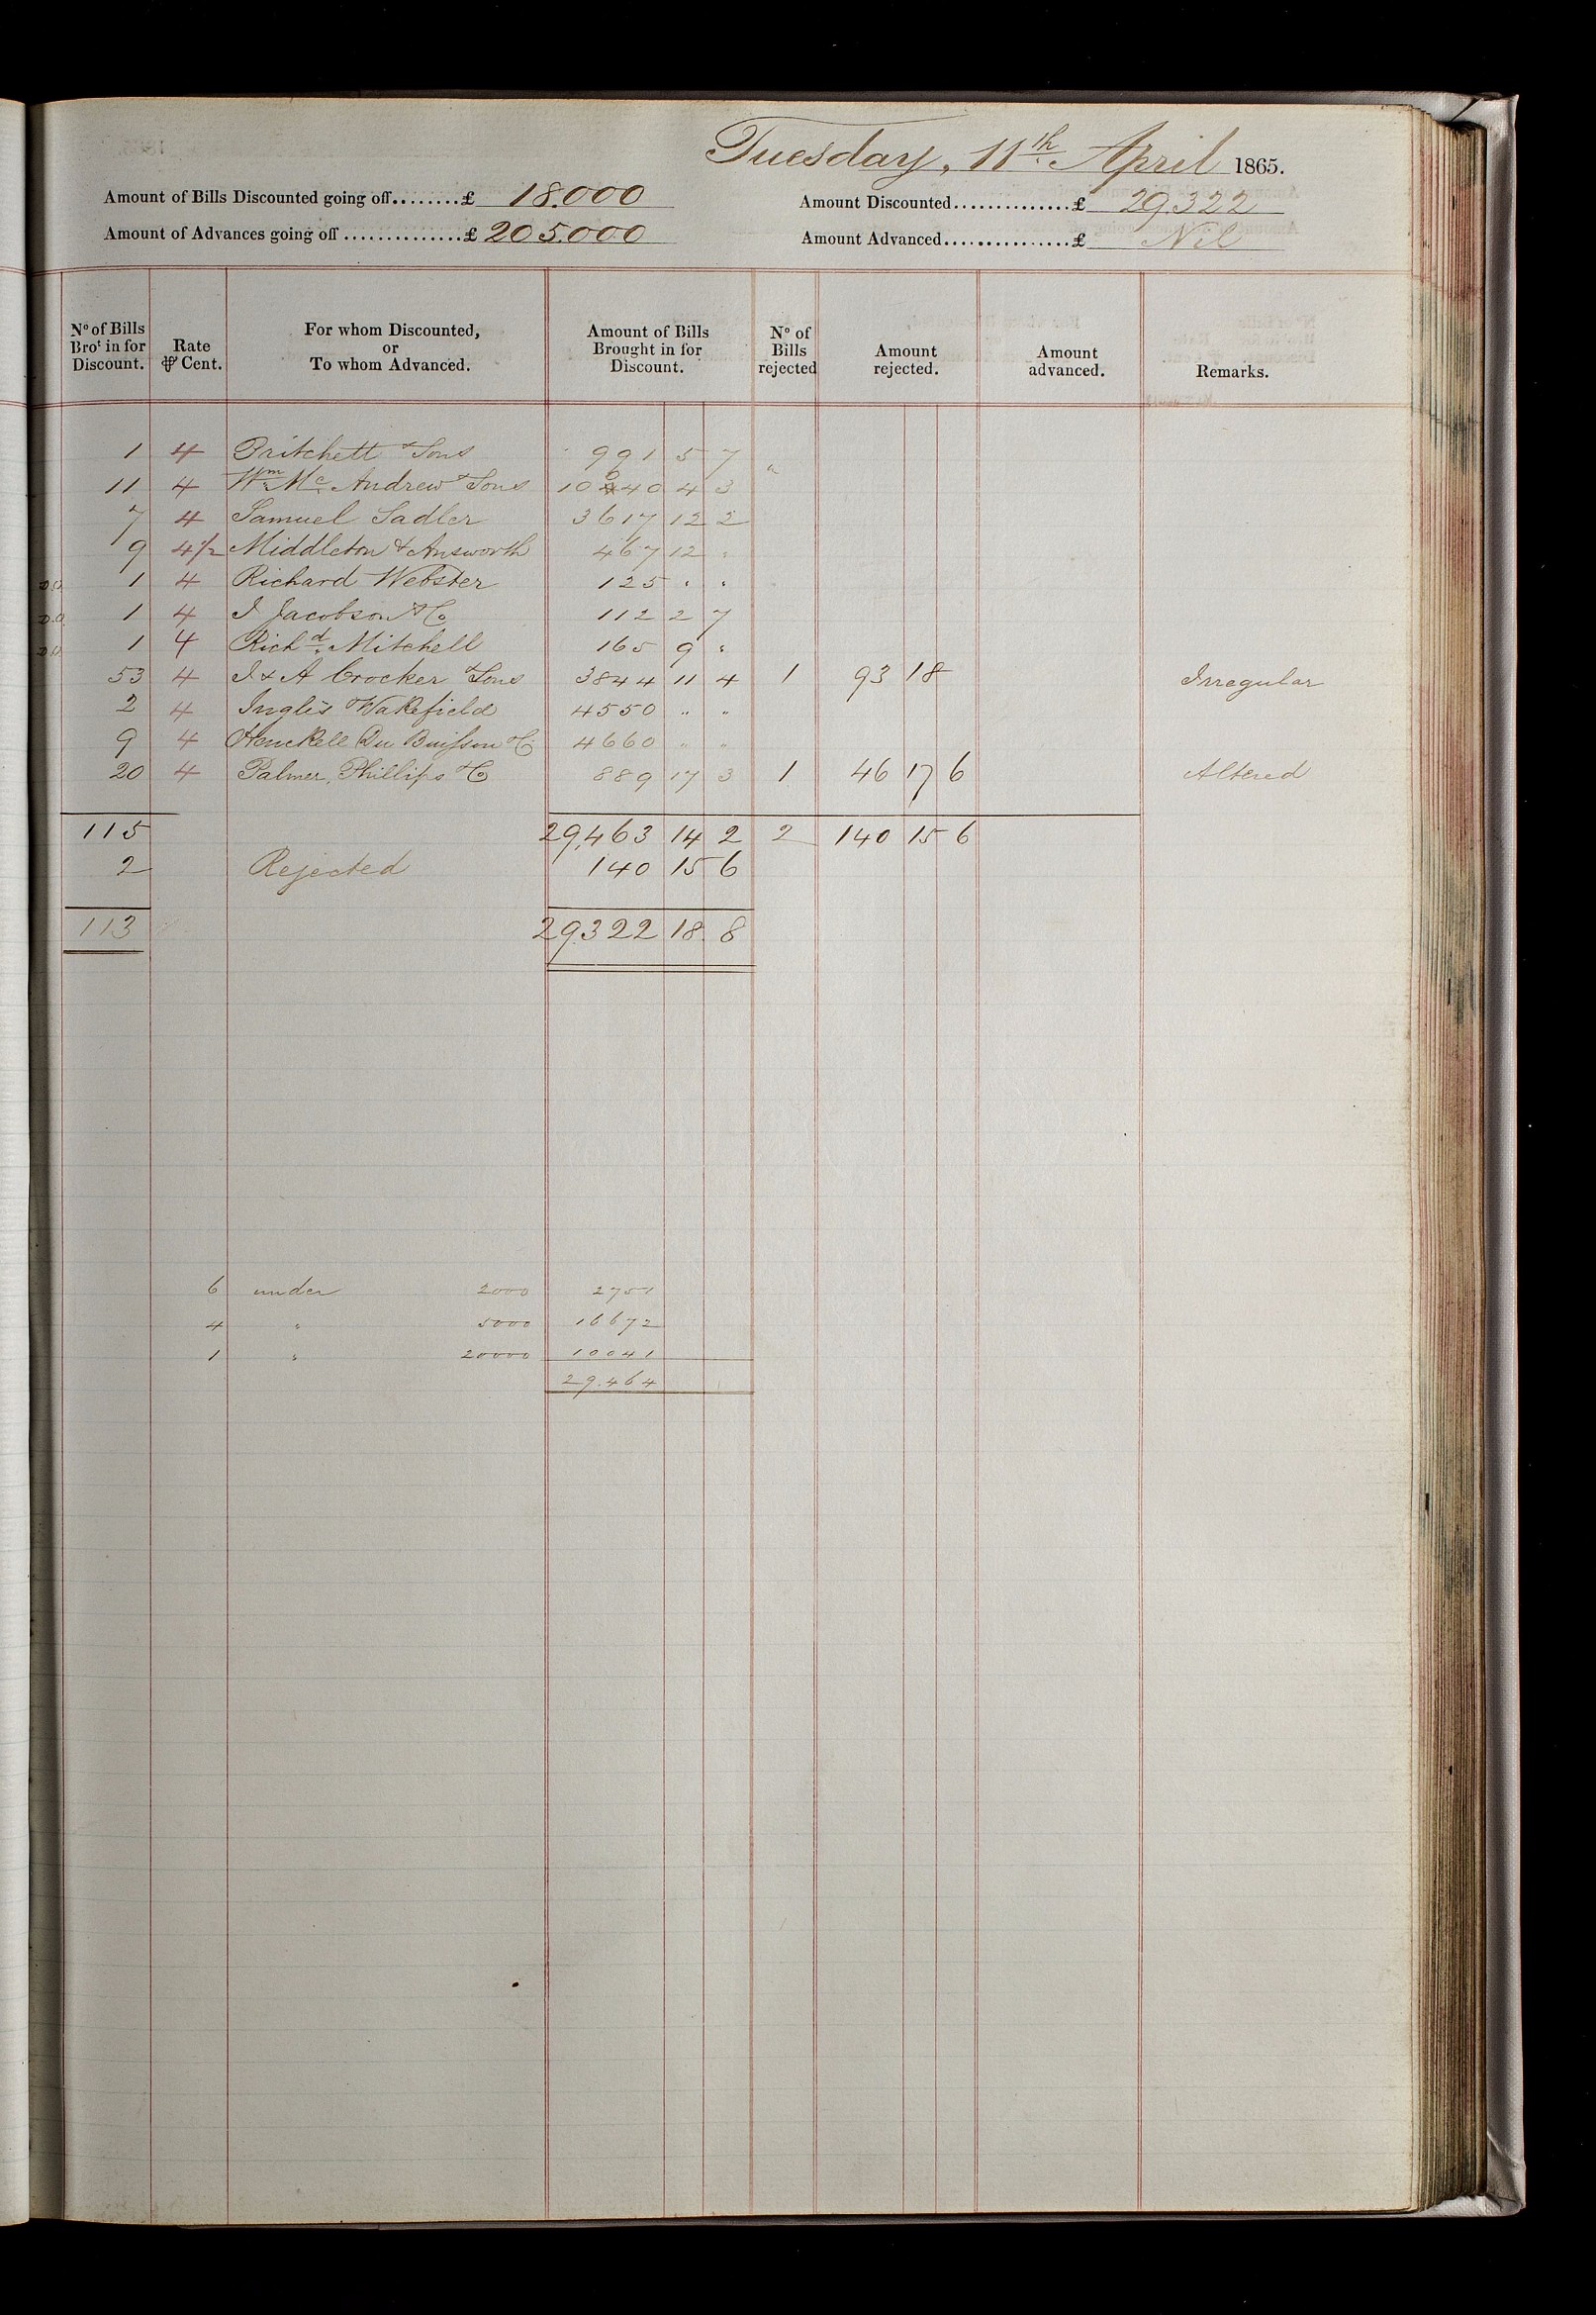 Tuesday, 11th April 1865.
Amount of Bills Discounted going off........£ 18.000 Amount Discounted..............£ 29322
Amount of Advances going off ..............£ 205.000 Amount Advanced...............£ Nil
No of Bills Brot in for Discount. Rate ⅌ Cent. For whom Discounted, or To whom Advanced. Amount of Bills Brought in for Discount. No of Bills rejected Amount rejected. Amount advanced. Remarks.
1 4 Pritchett & Sons 991 5 7 "
11 4 Wm Mc Andrew & Sons 10040 4 3
7 4 Samuel Sadler 3617 12 2
9 4½ Middleton & Answorth 467 12 "
1 4 Richard Webster 125 " "
1 4 I Jacobson & Co 112 2 7
1 4 Richd Mitchell 165 9 "
53 4 I & A Crocker & Sons 3844 11 4 1 93 18 Irregular
2 4 Inglis Wakefield 4550 " "
9 4 Henckell Du Buisson & Co 4660 " "
20 4 Palmer, Phillips & Co 889 17 3 1 46 17 6 Altered
115 29,463 14 2 2 140 15 6
2 Rejected 140 15 6
113 29322 18 8
6 under 2000 2751
4 " 5000 16672
1 " 20000 10041
29.464